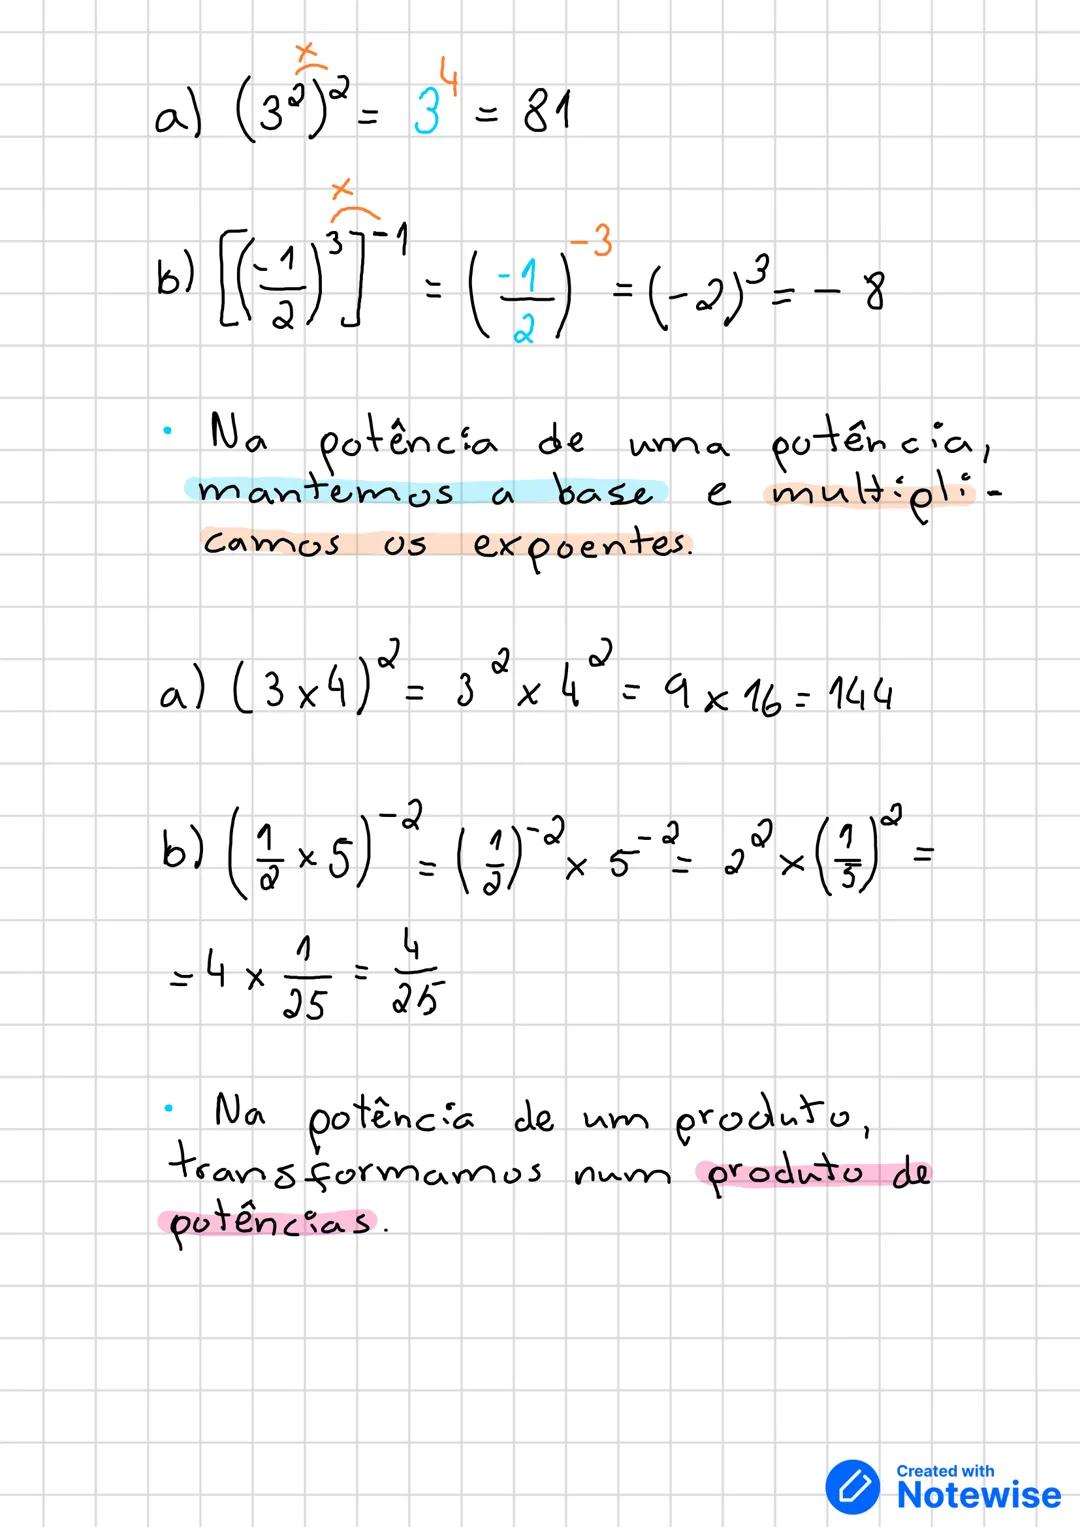 x
a) (3²)² = 3⁴ = 81
x
b) [(-1/2)³]⁻¹ = (-1/2)⁻³ = (-2)³ = - 8
• Na potência de uma potência,
mantemos a base e multipli-
camos os expoentes.
a) (3x4)² = 3² x 4² = 9 x 16 = 144
b) (1/2 x 5)⁻² = (1/2)⁻² x 5⁻² = 2² x (1/5)² =
= 4 x 1/25 = 4/25
• Na potência de um produto,
transformamos num produto de
potências.
Created with
Notewise